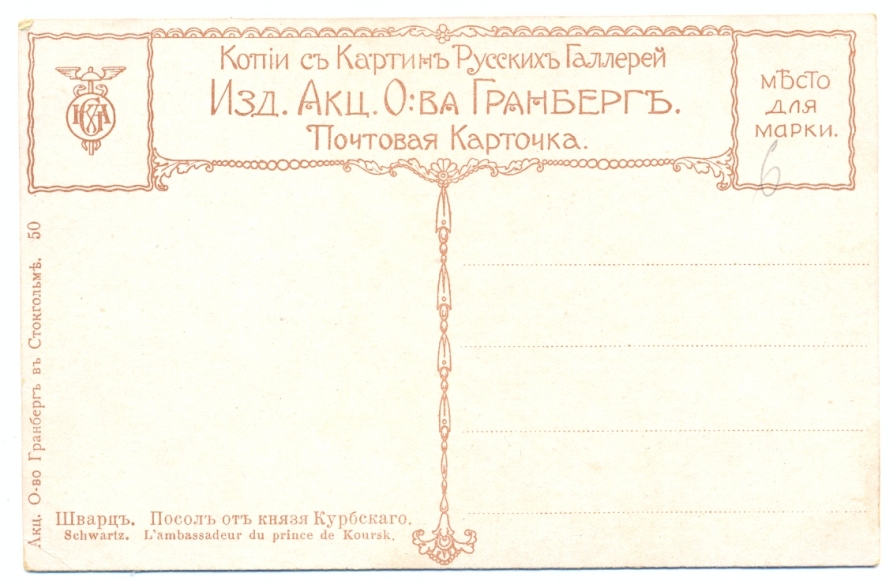 Копіи съ Картинъ Русскихъ Галлерей
Изд. Акц. О:ва Гранбергъ.
Почтовая Карточка.
мѣсто
для
марки.
6
Акц. О-во Гранбергъ въ Стокгольмѣ. 50
Шварцъ. Посолъ отъ князя Курбскаго.
Schwartz. L'ambassadeur du prince de Koursk.